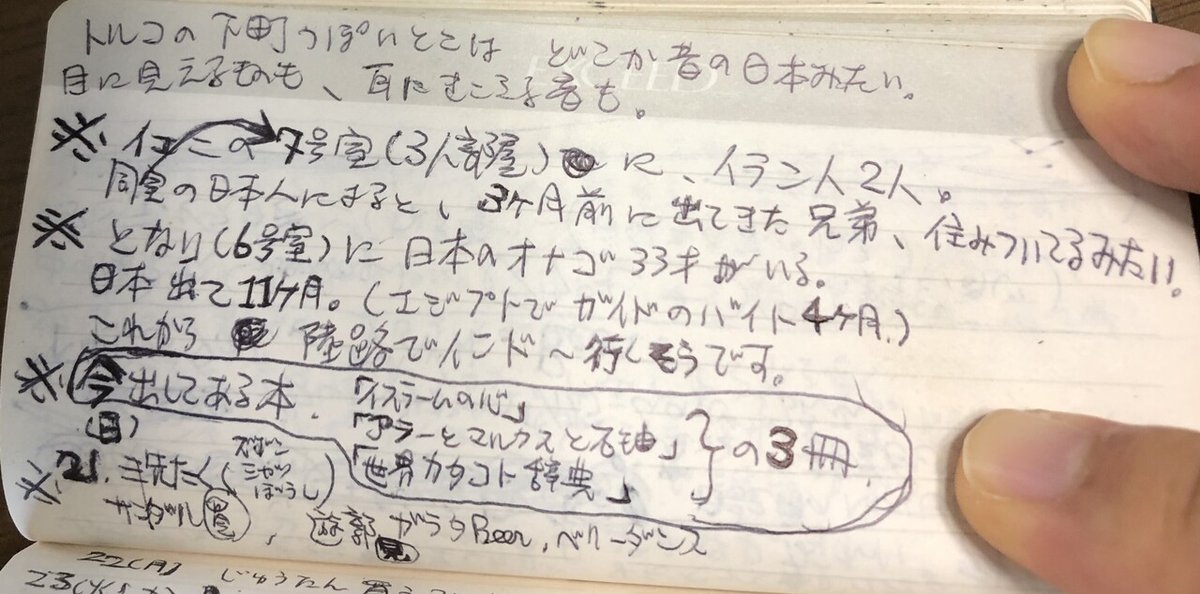 トルコの下町っぽいとこは どこか昔の日本みたい。
目に見えるものも、耳にきこえる音も。
※ 7号室(3人部屋) に、イラン人2人。
同室の日本人によると、3ヶ月前に出てきた兄弟、住みついてるみたい!
※ となり(6号室)に日本のオナゴ33才がいる。
日本出て11ヶ月。(エジプトでガイドのバイト4ヶ月。)
これから 陸路でインドへ行くそうです。
※ 今出してある本.「イスラームの心」
「アラーとマルクスと石油」
「世界カタコト辞典」
}の3冊
(日)
※21. 洗たく(ズボン
シャツ
ぼうし)
サンダル 買, 遊郭 見 ガラタBeer, ベリーダンス
22(月) じゅうたん 買う
23(火)